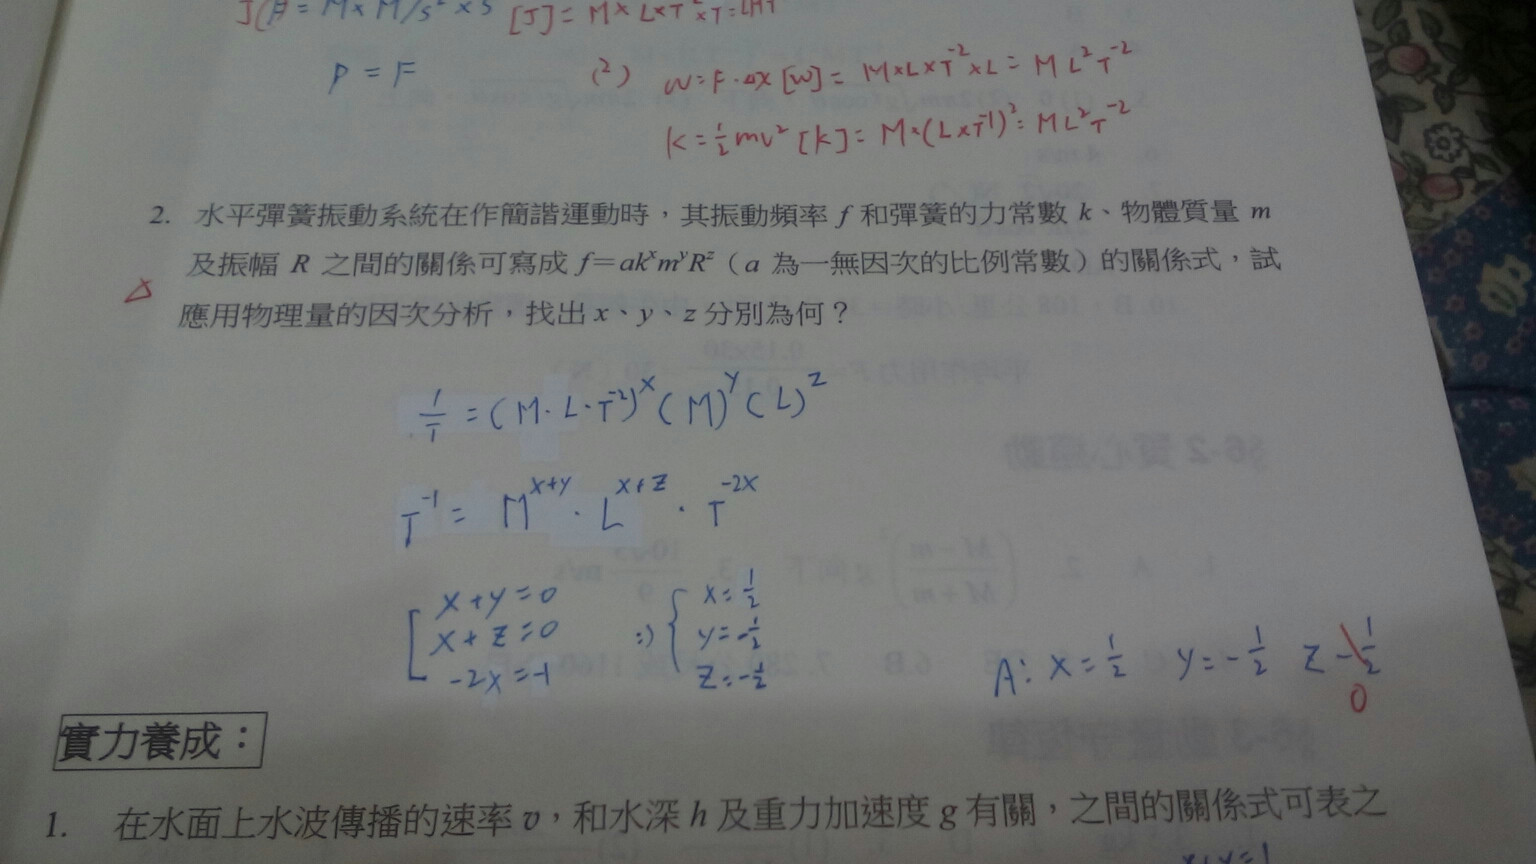 J(F = M × M/s² × s [J] = M × L×T⁻²×T = LMT
P = F
(2) W = F·ΔX [W] = M×L×T⁻²×L = ML²T⁻²
K = ½mv² [K] = M×(L×T⁻¹)² = ML²T⁻²
2. 水平彈簧振動系統在作簡諧運動時，其振動頻率 f 和彈簧的力常數 k、物體質量 m
及振幅 R 之間的關係可寫成 f＝akˣmʸRᶻ（a 為一無因次的比例常數）的關係式，試
應用物理量的因次分析，找出 x、y、z 分別為何？
1/T = (M·L·T⁻²)ˣ(M)ʸ(L)ᶻ
T⁻¹ = M^(x+y) · L^(x+z) · T^(-2x)
x+y=0 x=½
x+z=0 ⇒ y=-½
-2x=-1 z=-½
A: x=½ y=-½ z-½
0
實力養成：
1. 在水面上水波傳播的速率 v，和水深 h 及重力加速度 g 有關，之間的關係式可表之
x+y=1